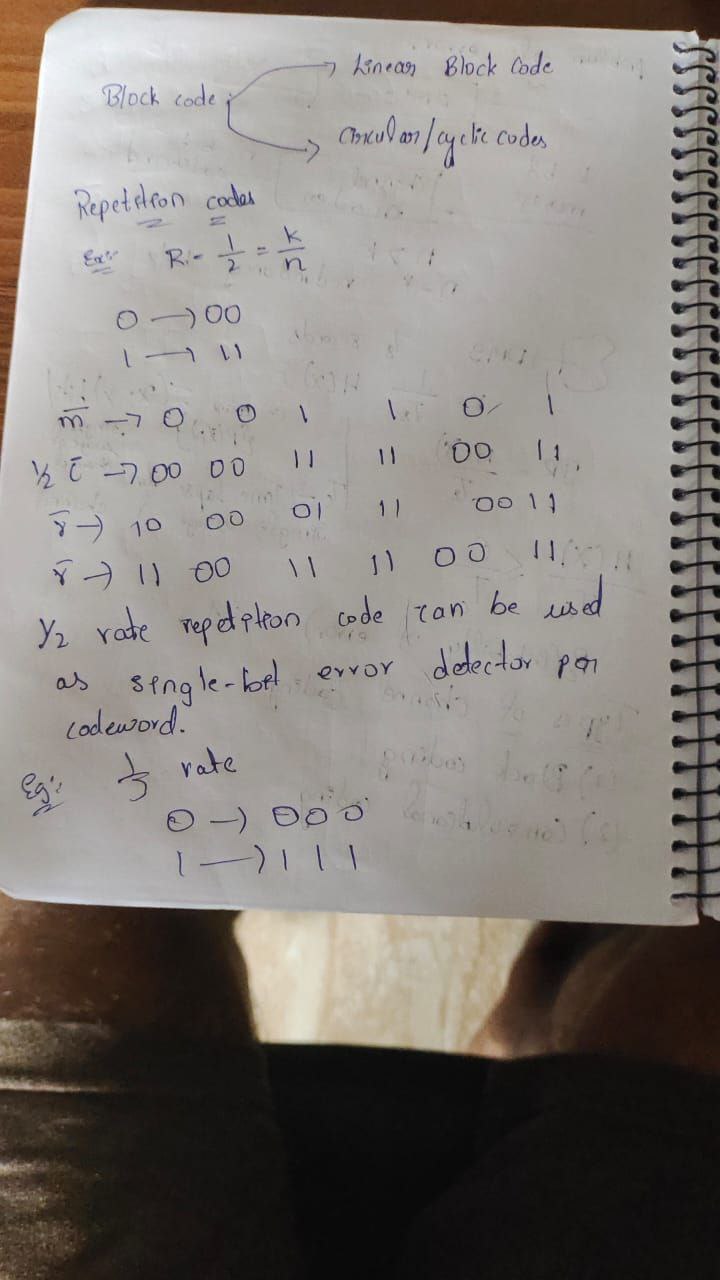 Linear Block Code
Block code
Circular/cyclic codes
Repetition codes
Ex:- R = 1/2 = k/n
0 → 00
1 → 11
m̅ → 0 0 1 1 0 1
1/2 c̅ → 00 00 11 11 00 11
r̅ → 10 00 01 11 00 11
r̅ → 11 00 11 11 00 11
1/2 rate repetition code can be used
as single-bit error detector per
codeword.
Eg:- 1/3 rate
0 → 000
1 → 111